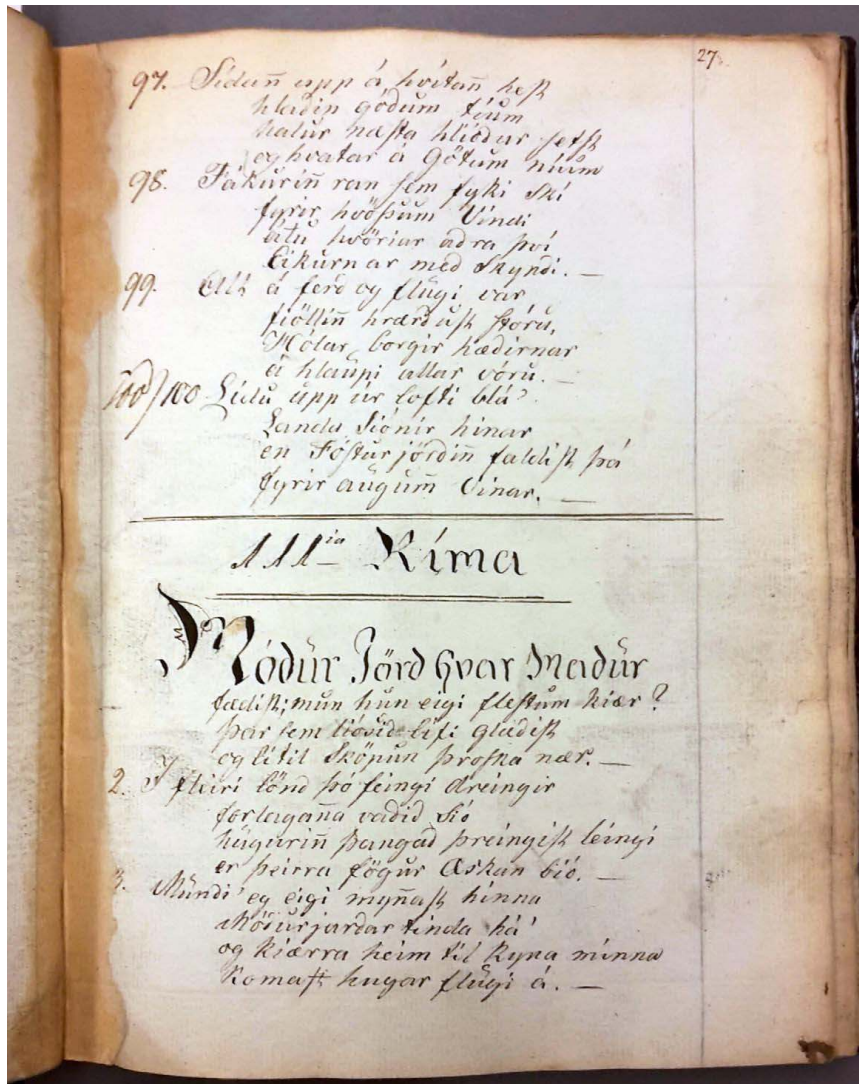 27.
97. Sídan̄ upp á hvítan̄ hest
hladin gódum tóum
halur næsta hlíódur setst
og hvatar á Götum núum
98. Fákurin̄ ran sem fyki Skí
fyrir hvössum Vindi
átu hvöriar adra því
Eikurnar med Skyndi. —
99. Allt á ferd og flúgi var
fiöllin̄ hrærdust stóru,
Hólar, borgir hædirnar
á hlaupi allar vóru. —
100 Lídu upp úr lofti blá
Landa Siónir hinar
en Fósturjördin̄ faldist þá
fyrir augum̄ Vinar. —
111ia Ríma
Módur Jörd hvar Madur
fædist; mun hun eigi flestum kiær?
þar sem liósid lífi gladist
og lítil Sköpun þroska nær. —
2. I fleiri lönd þó feingi dreingir
forlagan̄a vadid Sió
hugurin̄ þangad þreingist leingi
er þeirra fögur Æskan bió. —
3. Mundi eg eigi myn̄ast hinna
Módurjardar tinda há
og kiærra heim til kyna minna
Komast hugar flúgi á. —